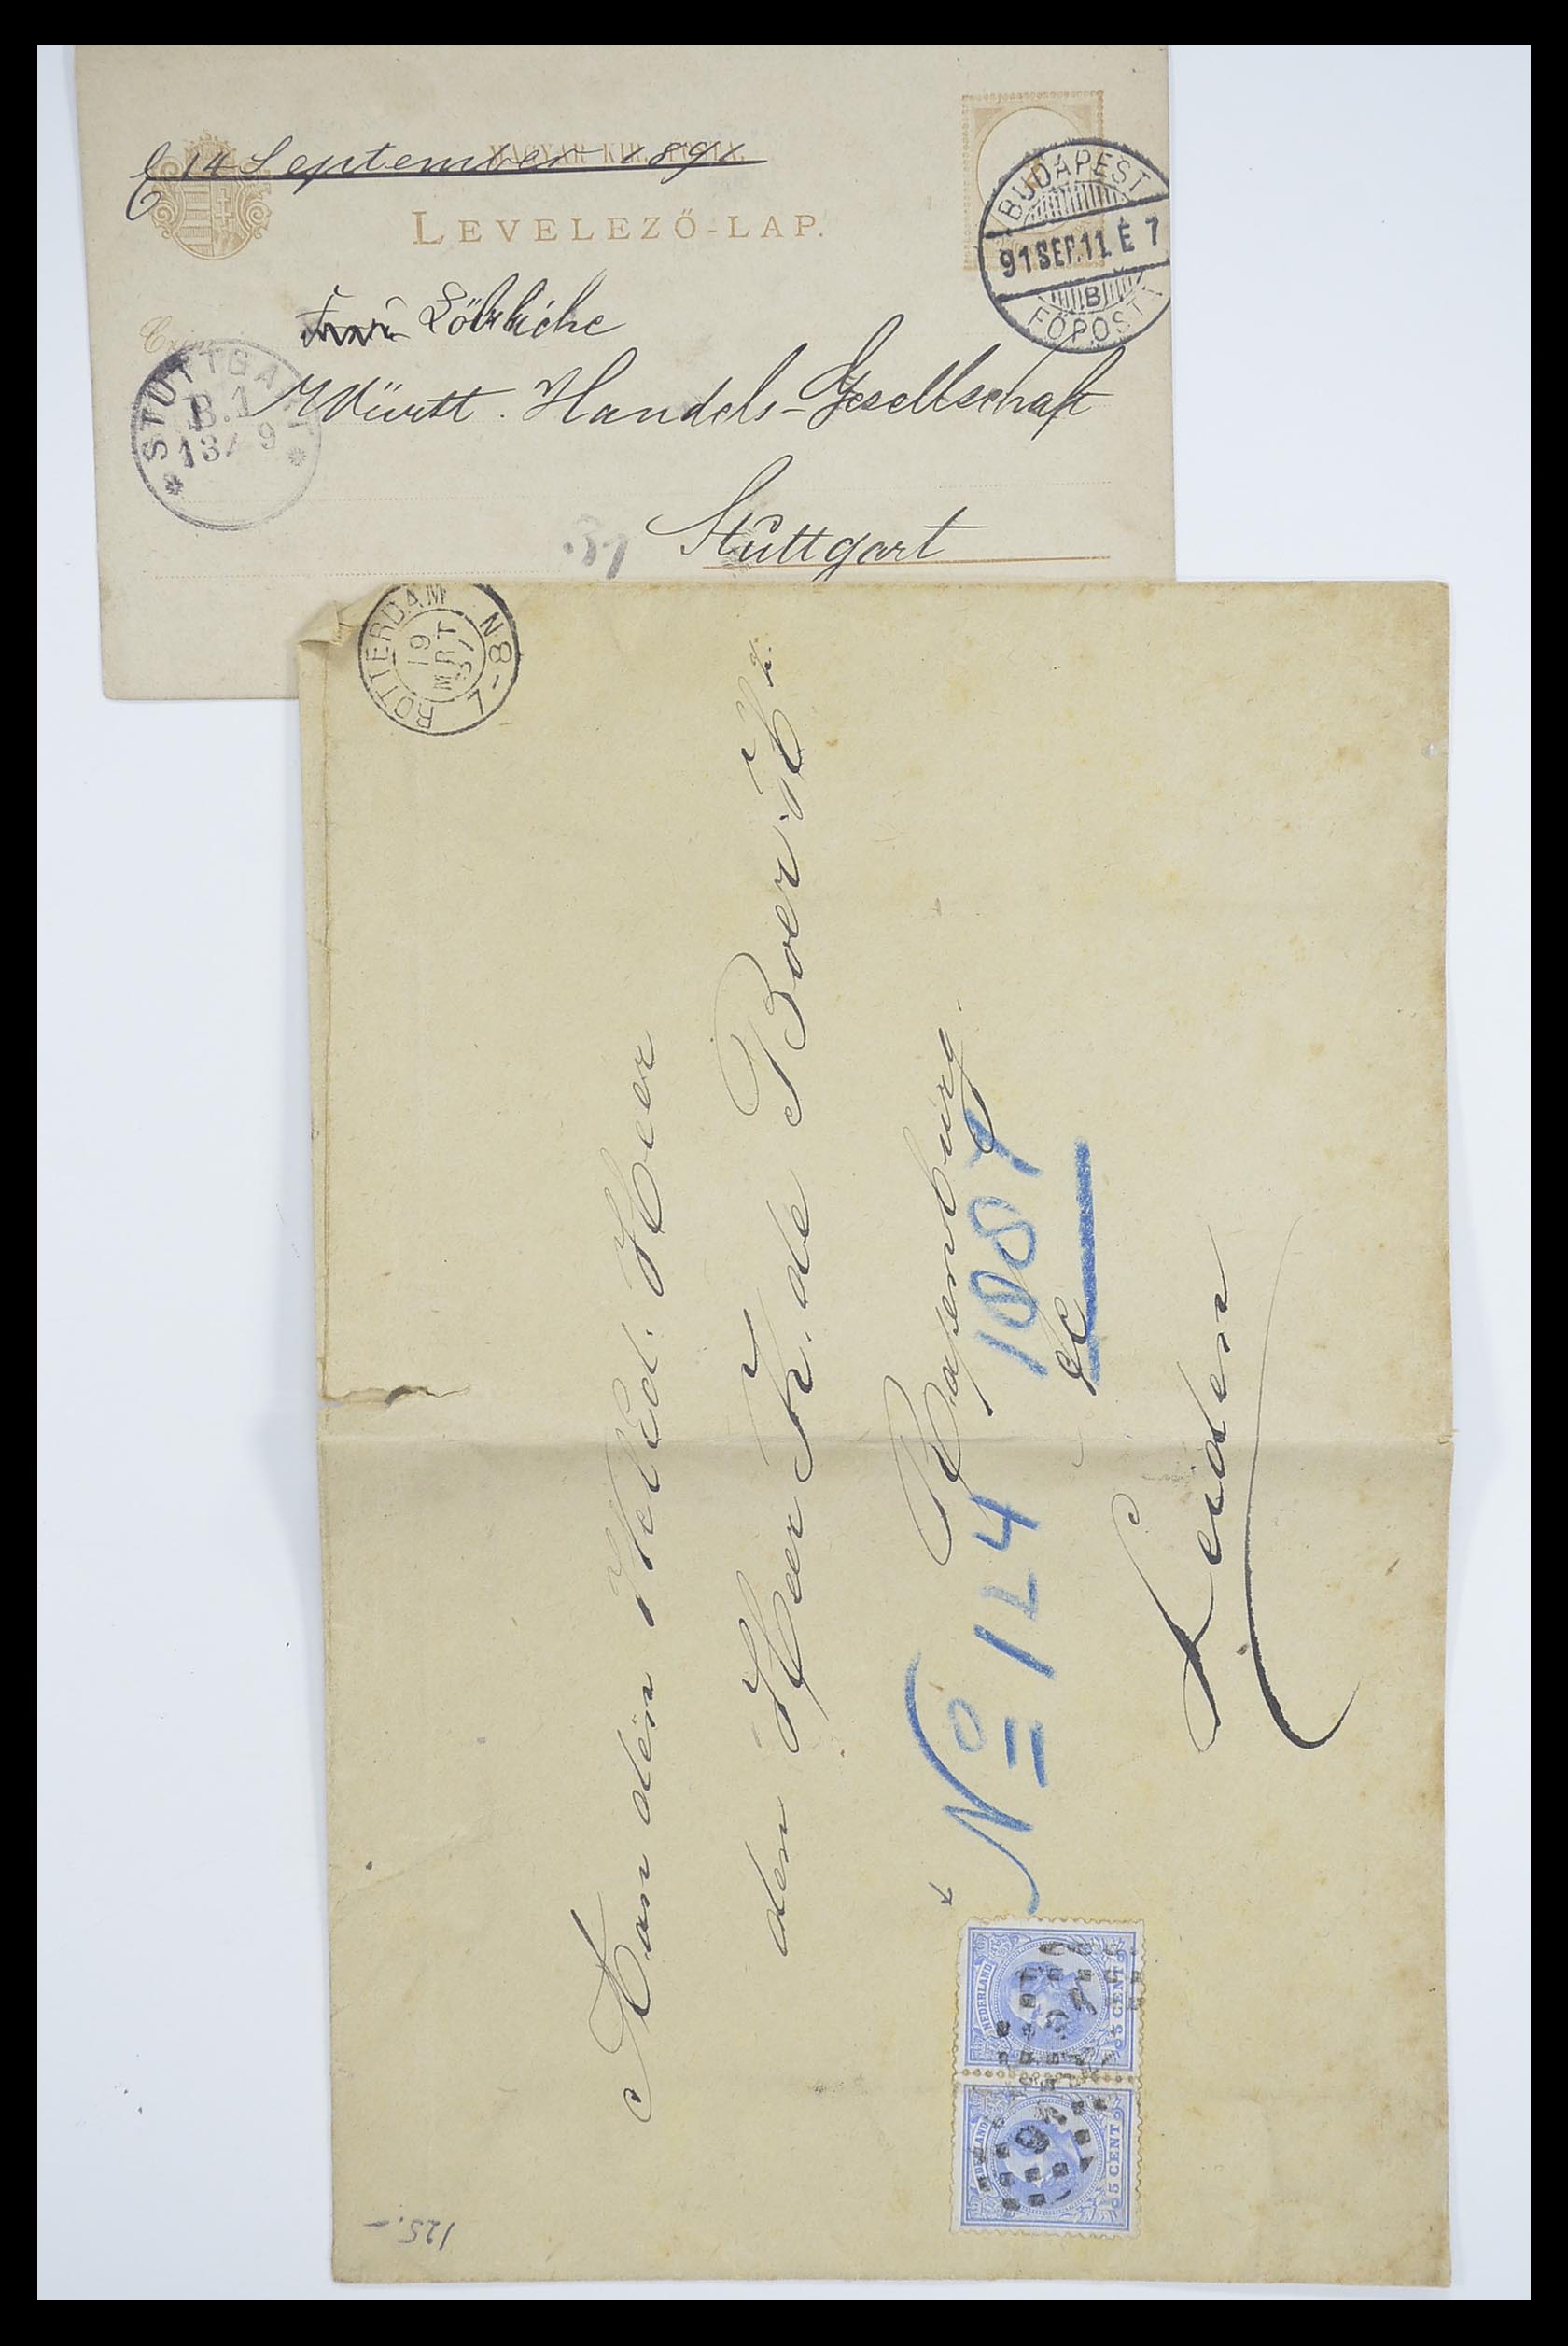 14 September 1891
MAGYAR KIR. POSTA.
LEVELEZŐ-LAP.
BUDAPEST
91 SEP. 11. É 7
B
FŐPOSTA
Löbliche
Württ. Handels-Gesellschaft
Stuttgart
STUTTGART
B.1
13/9
ROTTERDAM
19
MRT
87
7-8N
Aan den WelEd. Heer
den Heer K. de Boer Hz.
Rapenburg.
No 124 1887
Leiden
NEDERLAND
5 CENT
NEDERLAND
5 CENT
125.-